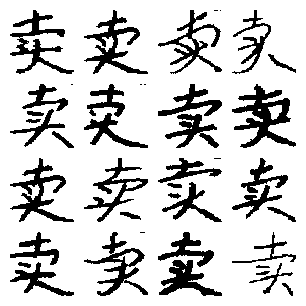 卖卖卖卖
卖卖卖卖
卖卖卖卖
卖卖卖卖